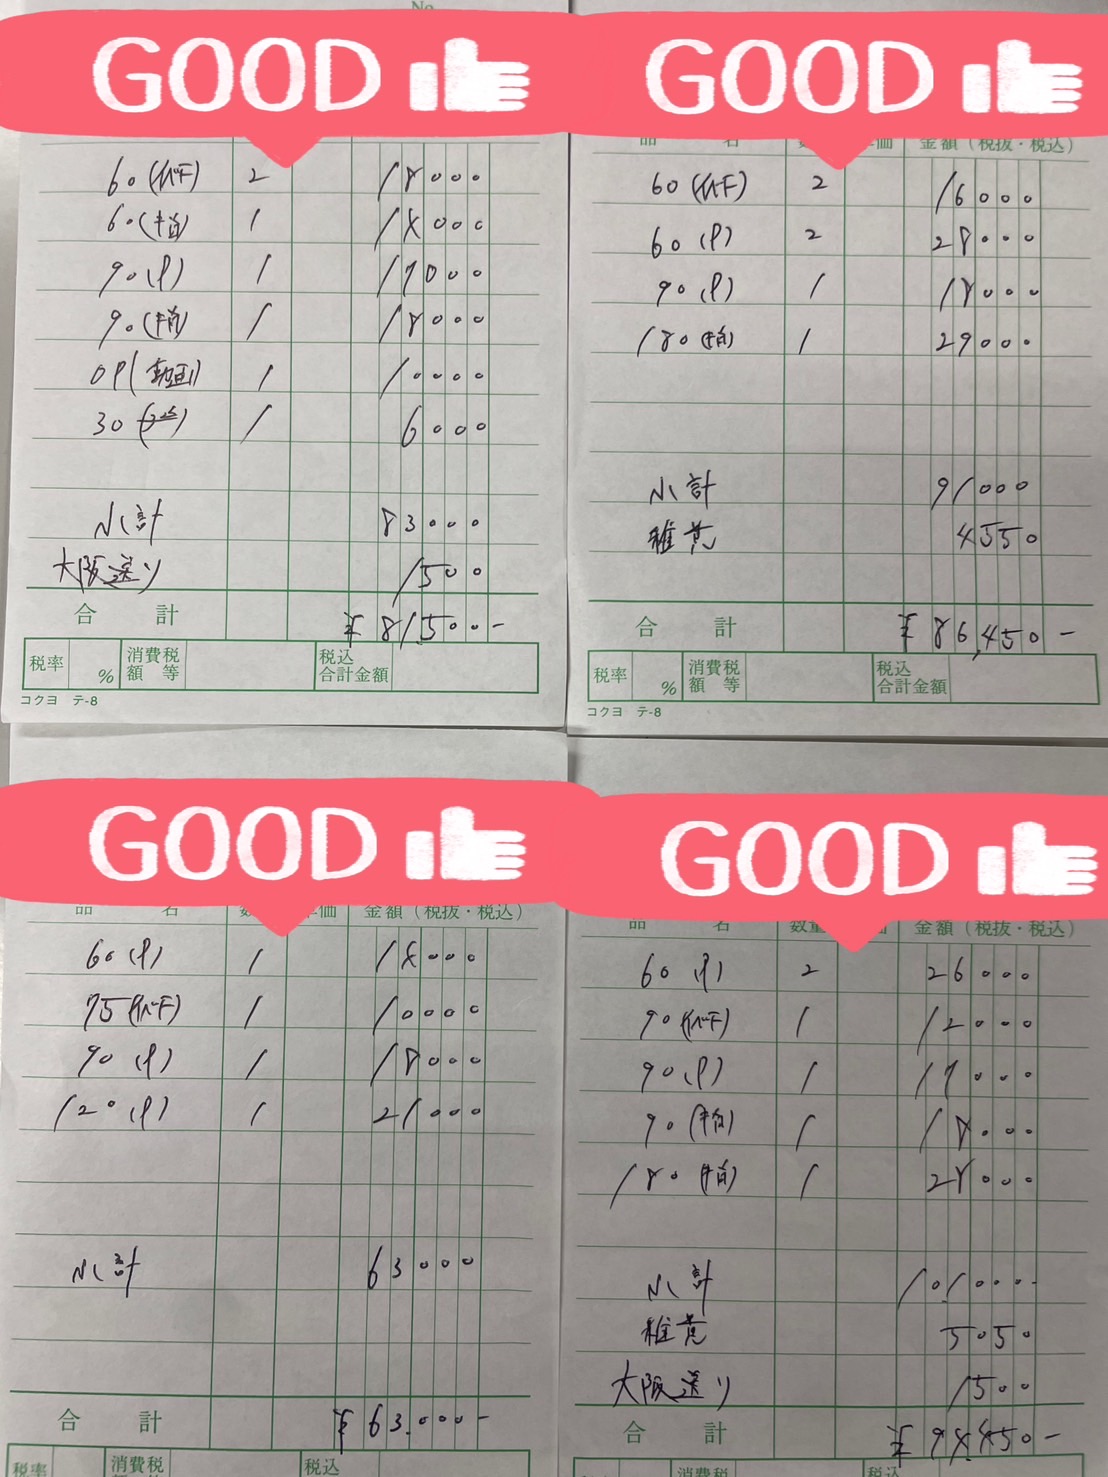 No.
GOOD
60(イベ下) 2 18000
60(本指) 1 14000
90(P) 1 17000
90(本指) 1 18000
OP(動画) 1 10000
30 1 6000
小計 83000
大阪送り 1500
合計 ¥81500-
税率 % 消費税額等 税込合計金額
コクヨ テ-8
GOOD
品名 金額(税抜・税込)
60(イベ下) 2 16000
60(P) 2 28000
90(P) 1 18000
180(本指) 1 29000
小計 91000
雑費 4550
合計 ¥86,450-
税率 % 消費税額等 税込合計金額
コクヨ テ-8
GOOD
品名 金額(税抜・税込)
60(P) 1 14000
75(イベ下) 1 10000
90(P) 1 18000
120(P) 1 21000
小計 63000
合計 ¥63.000-
税率 消費税 税込
GOOD
品名 数量 金額(税抜・税込)
60(P) 2 26000
90(イベ下) 1 12000
90(P) 1 17000
90(本指) 1 18000
180(本指) 1 28000
小計 101000-
雑費 5050
大阪送り 1500
合計 ¥94.450-
消費税 税込